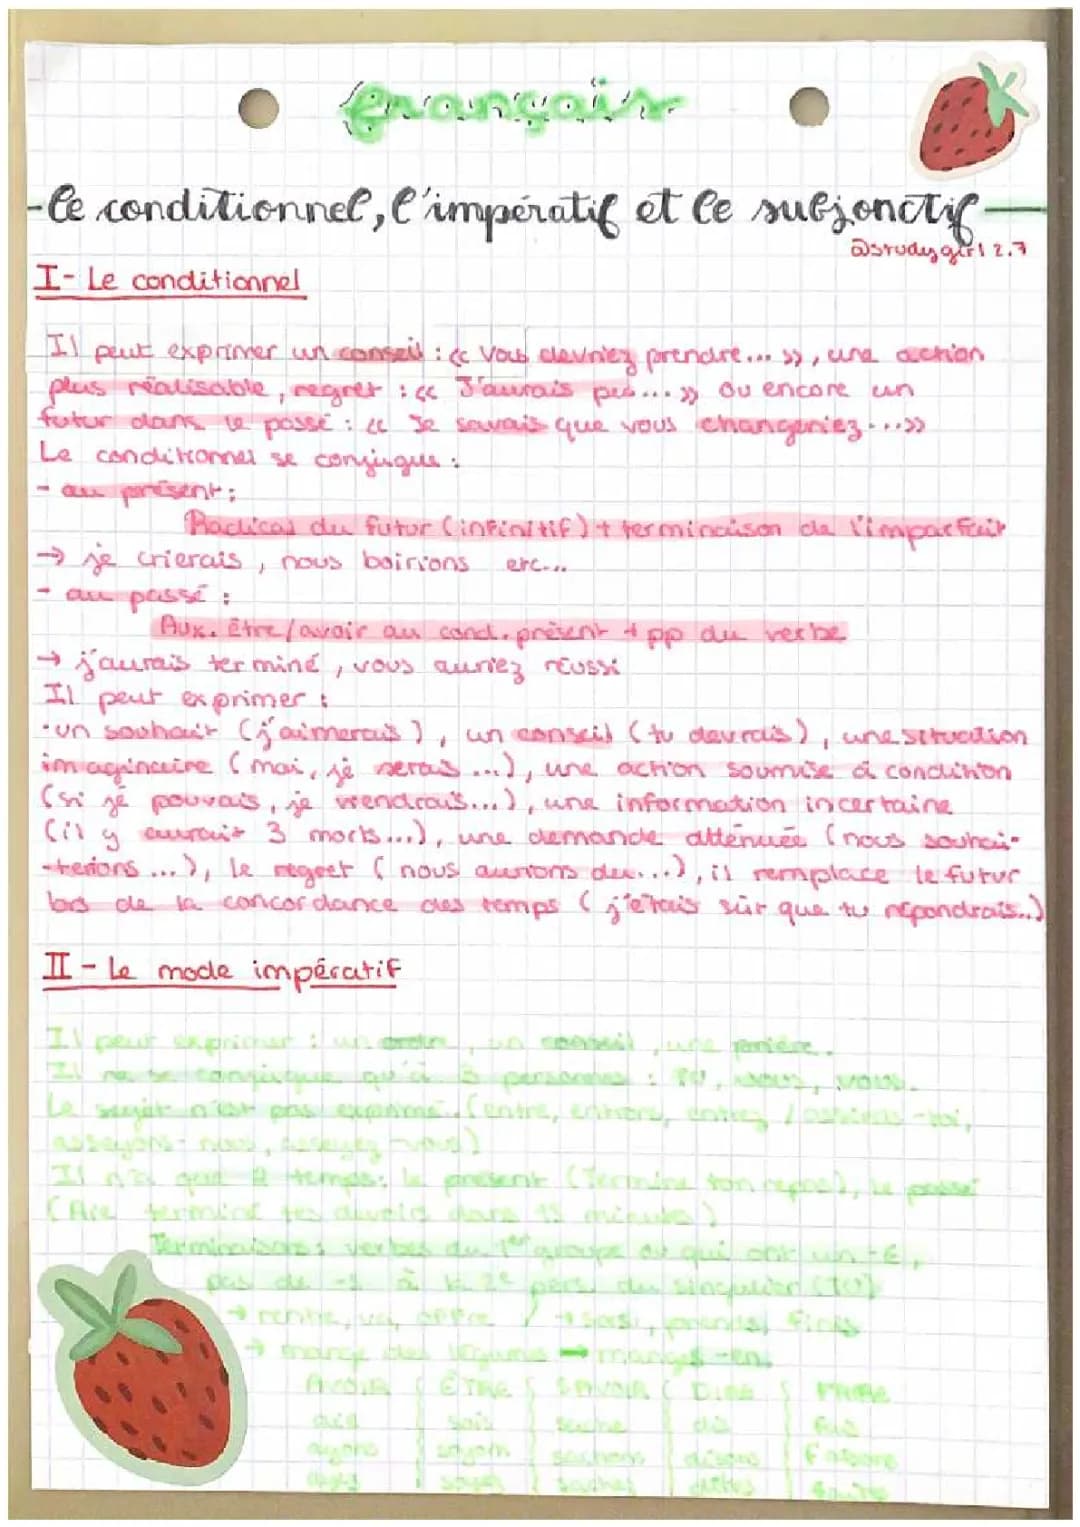 français
- le conditionnel, l'impératif et le subjonctif -
@studygirl2.7
I - Le conditionnel
Il peut exprimer un conseil : << Vous devriez prendre... >>, une action
plus réalisable, regret : << J'aurais pu... >> ou encore un
futur dans le passé : << Je savais que vous changeriez...>>
Le conditionnel se conjugue :
- au présent :
Radical du futur (infinitif) + terminaison de l'imparfait
→ je crierais, nous boirions etc...
- au passé :
Aux. être/avoir au cond. présent + pp du verbe
→ j'aurais terminé, vous auriez réussi
Il peut exprimer :
- un souhait (j'aimerais), un conseil (tu devrais), une situation
imaginaire (moi, je serais ...), une action soumise à condition
(si je pouvais, je viendrais...), une information incertaine
(il y aurait 3 morts...), une demande atténuée (nous souhai-
-terions ...), le regret (nous aurions du...), il remplace le futur
lors de la concordance des temps (j'étais sûr que tu répondrais..)
II - Le mode impératif
Il peut exprimer : un ordre, un conseil, une prière.
Il ne se conjugue qu'à 3 personnes : TU, nous, vous.
Le sujet n'est pas exprimé. (entre, entrons, entrez / assieds-toi,
asseyons-nous, asseyez-vous)
Il n'a que 2 temps : le présent (Termine ton repas), le passé
(Aie terminé tes devoirs dans minutes)
Terminaisons : verbes du 1er groupe ou qui ont un -E,
pas de -s à la 2e pers du singulier (TU)
→ rentre, va, offre / → sois, prends, finis
→ mange des légumes → manges-en.
AVOIR ÊTRE SAVOIR DIRE FAIRE
aie sois sache dis fais
ayons soyons sachons disons faisons
ayez soyez sachez dites faites